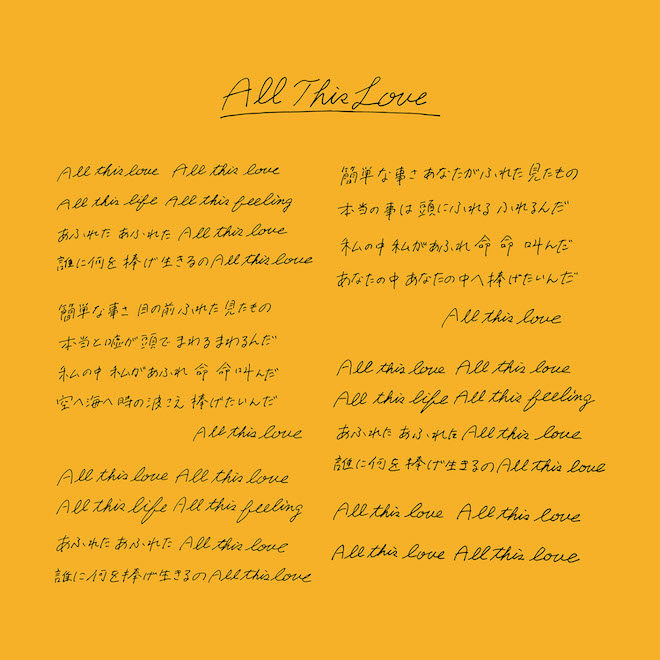 All This Love
All this love All this love
All this life All this feeling
あふれた あふれた All this love
誰に何を捧げ生きるのAll this love
簡単な事さ 目の前ふれた見たもの
本当と嘘が頭でまわるまわるんだ
私の中 私があふれ 命 命叫んだ
空へ海へ時の波こえ 捧げたいんだ
All this love
All this love All this love
All this life All this feeling
あふれた あふれた All this love
誰に何を捧げ生きるのAll this love
簡単な事さ あなたがふれた見たもの
本当の事は頭にふれる ふれるんだ
私の中 私があふれ 命 命 叫んだ
あなたの中 あなたの中へ捧げたいんだ
All this love
All this love All this love
All this life All this feeling
あふれた あふれた All this love
誰に何を捧げ生きるのAll this love
All this love All this love
All this love All this love